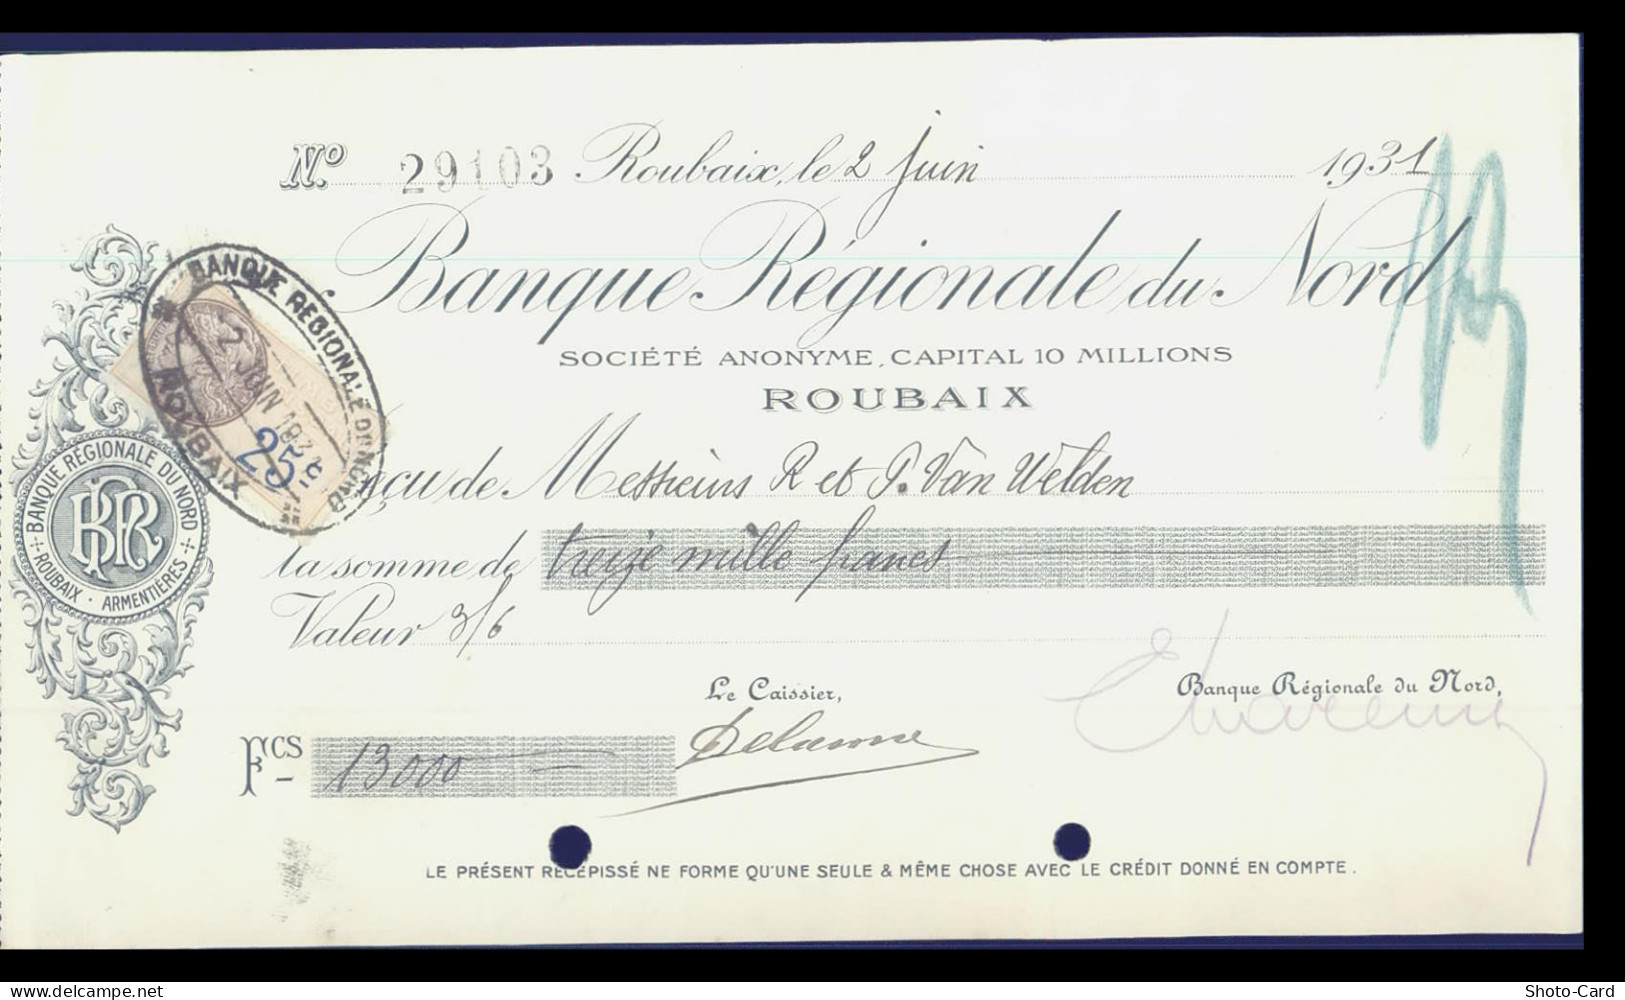 Nº 29103 Roubaix, le 2 Juin 1931
Banque Régionale du Nord
SOCIÉTÉ ANONYME, CAPITAL 10 MILLIONS
ROUBAIX
BANQUE REGIONALE DU NORD
2 JUIN 193
25 c
ROUBAIX
BANQUE RÉGIONALE DU NORD
BRN
ROUBAIX · ARMENTIÈRES
çu de Messieurs R et P. Van Welden
la somme de treize mille francs
Valeur 3/6
Le Caissier,
Banque Régionale du Nord,
Fcs 13000
Delannoe
LE PRÉSENT RECÉPISSÉ NE FORME QU'UNE SEULE & MÊME CHOSE AVEC LE CRÉDIT DONNÉ EN COMPTE.
www.delcampe.net
Shoto-Card